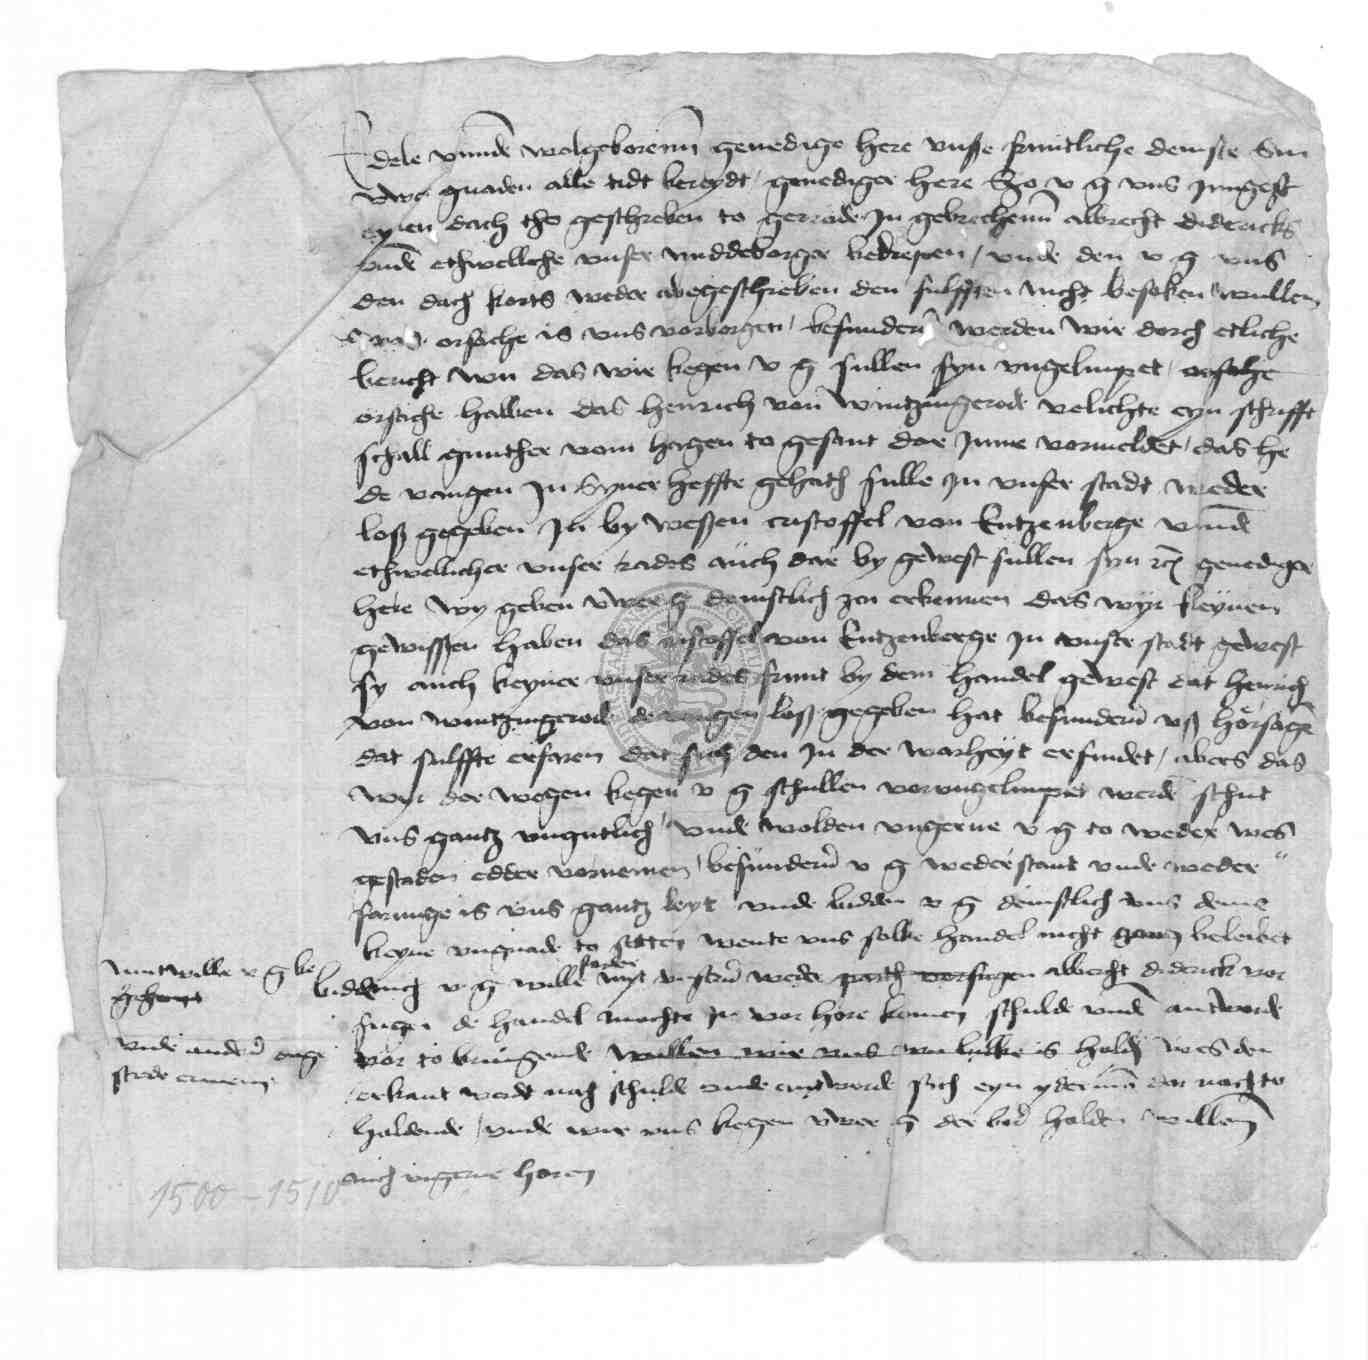 Edele unnde wolgebornn genedige here unße fruntliche denste Sin
uwer gnaden alle tidt bereydt / genediger here Szo u g uns jungest
eynen dach tho geschreben to gerrode In gebrechenn albrecht didericks
unde ethwelliche unser middeborger bedrepen / unde den u g uns
den dach korts weder abegeschrieben den sulfften nicht besoken wullen
orsache is uns vorborgen / besundern werden wir dorch etliche
bericht wu das wir kegen u g sullen syn ungelimpet /
orsache halben das henrich von wintzingerode velichte eyn schrifft
schall gunther vom hagen to gesant dar Inne vormeldet / das he
de vangen In syner heffte gehath sulle In unser stadt weder
loß gegeben In by weßen cristoffel von Entzenberge unnd
ethwellicher unser rades auch dar by gewest sullen syn genediger
here wy geben uwer g denstlich zcu erkennen das wyr keynen
gewisßen haben das cristoffel von Entzenberge In unser stadt gewest
sy auch keyner unser rades frunt by dem handel gewest dat henrich
von wintzingerode de vangen loß gegeben hat besundern uß hörsage
dat sulffte erfaren dat sich den In der warheyt erfindet / abers das
wyr der wegen kegen u g schullen vorungelimpet werde schut
uns gantz ungutlich / unde wolden ungerne u g to weder wes
gestaden edder vornemen / besundern u g wederstant unde weder
farunge is uns gantz leyt unde bidden u g denstlich uns deme
keyne ungnade to setten wente uns solke handel nicht beleibet
muttwille u g
biddende u g wille myt weder parth vorfugen albrecht diderick vor
fugen de handel mochte In vor höre komen schulde unde antworde
unde
vör to bringende wullen wir uns is holdt wes den
stede
erkant werdt nach schulde unde antworde sich eyn yderman dar nach to
haldende / unde wir uns kegen uwer g der holden willen
auch ungerne horen
1500 - 1510